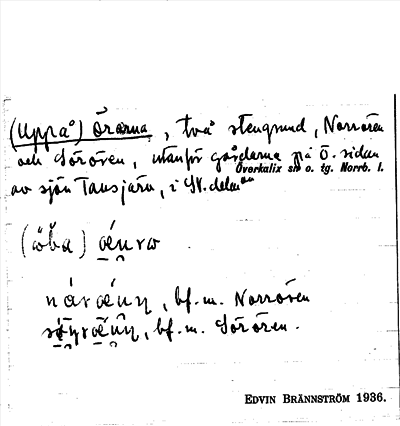 (Uppå) Örarna, två stengrund, Norrören
och Sörören, utanför gårdarna på Ö. sidan
Överkalix sn o. tg. Norrb. l.
av sjön Tansjärv, i SV. delen
(ǒb̌a)
bf. m. Norrören
bf. m. Sörören.
EDVIN BRÄNNSTRÖM 1936.